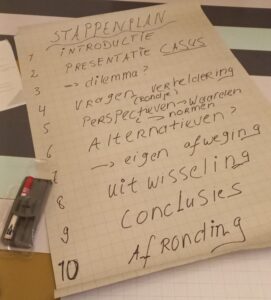 STAPPENPLAN
1 INTRODUCTIE
2 PRESENTATIE CASUS
3 → dilemma?
4 Vragen verheldering
(rondje)
5 PERSPECTIEVEN → Waarden
→ normen
6 Alternatieven?
7 → eigen afweging
8 uitwisseling
9 Conclusies
10 Afronding